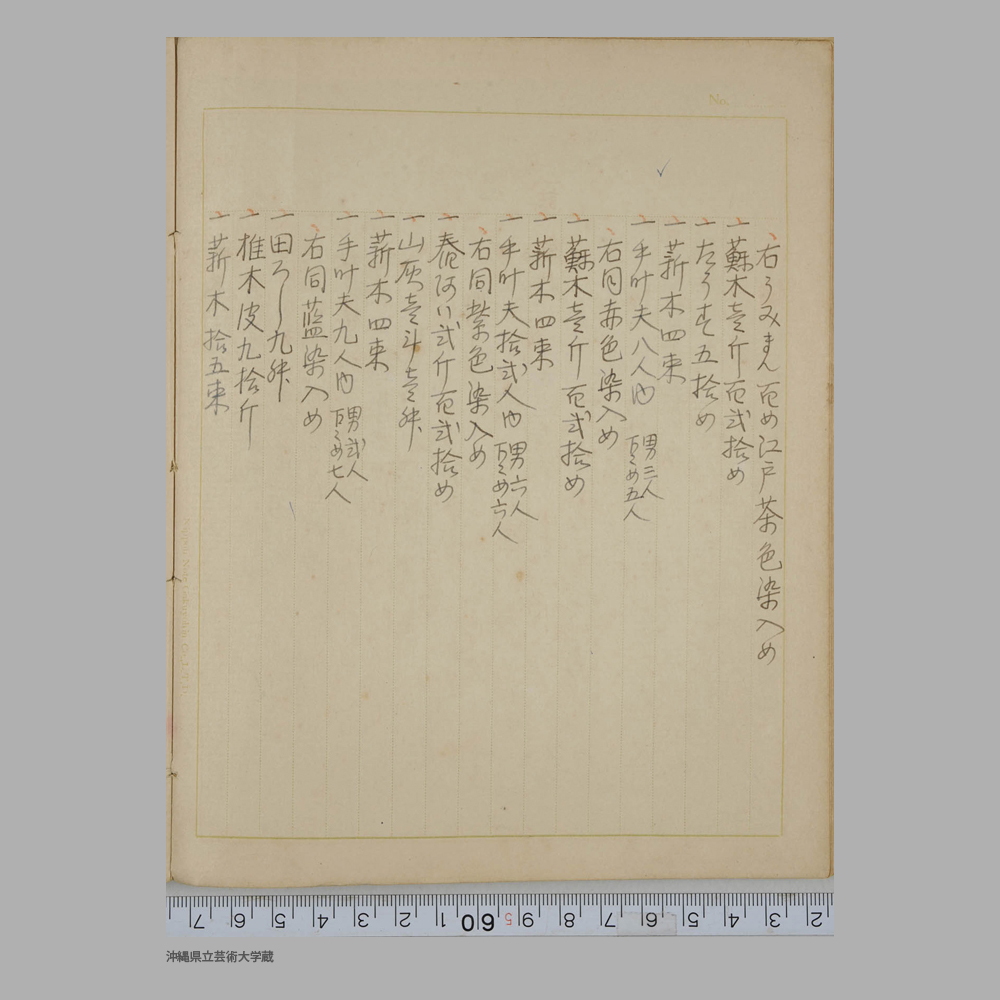 No.
右うみまん百め江戸茶色染入め
一蘇木壱斤百弐拾め
一たうす五拾め
一薪木四束
一手叶夫八人内 男三人 百々め五人
右同赤色染入め
一蘇木壱斤百弐拾め
一薪木四束
一手叶夫拾弐人内 男六人 百々め六人
右同紫色染入め
一阿い弐斤百弐拾め
一山灰壱斗壱舛
一薪木四束
一手叶夫九人内 男弐人 百々め七人
右同藍染入め
一田ろし九舛
一椎木皮九拾斤
一薪木拾五束
7 6 5 4 3 2 1 60 5 9 8 7 6 5 4 3 2
沖縄県立芸術大学蔵